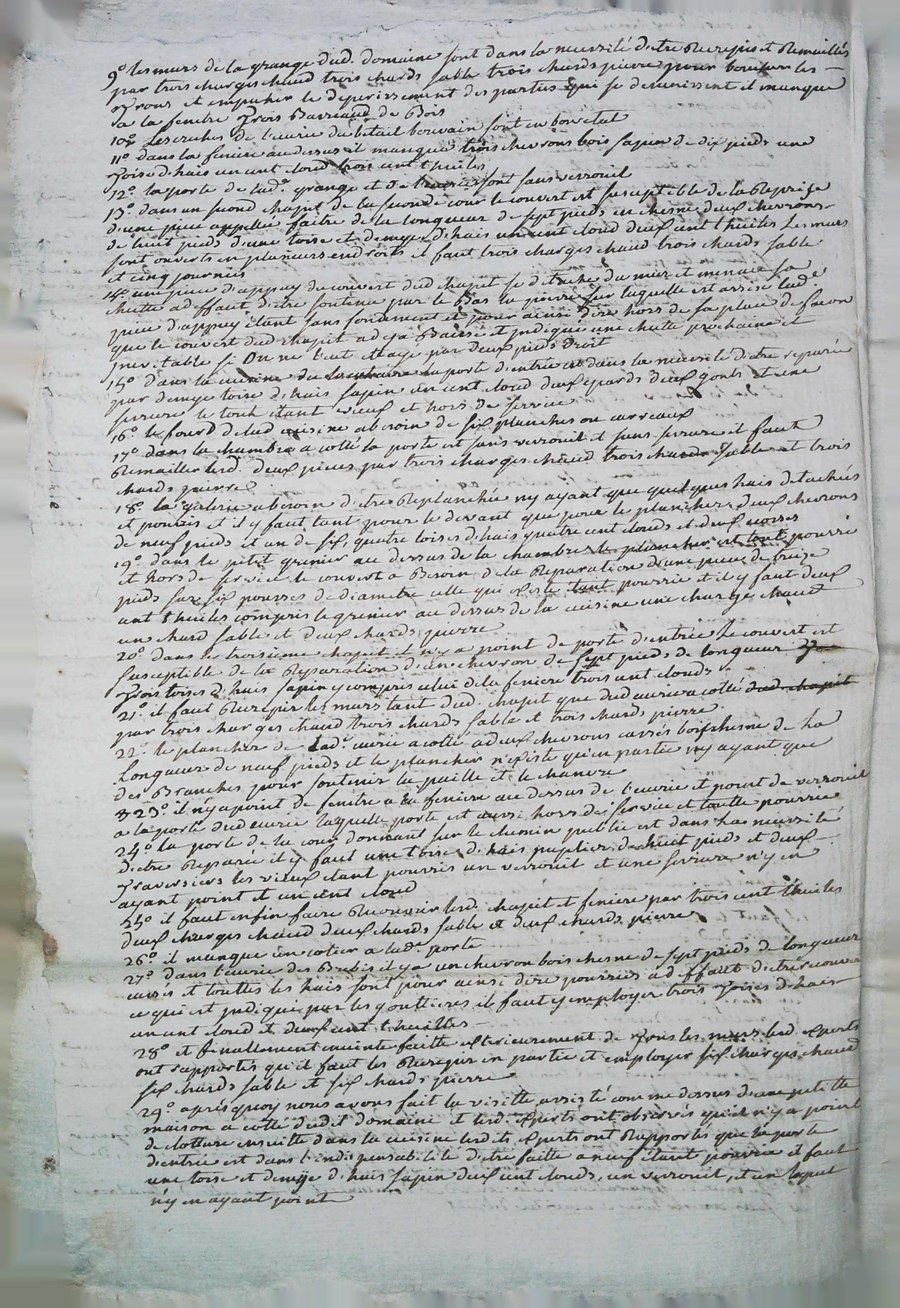 9.º les murs de la grange dud. domaine sont dans la necessité detre Recrepis et Remaillés
par trois charges chaud trois chards sable trois chards pierre pour boucher les
trous et empecher le deperissement des parties que se demunissent il manque
a la fenetre trois Barreaud de Bois
10º Les creches de lecurie du betail bouvain sont en bon etat
11º dans la feniere au dessus il manque trois chevrons bois sapin de dix pieds une
toise d'hais un cent cloud trois cent thuiles
12º la porte de lad. grange et de lecurie sont sans verrouil
13º dans un second chapit de la seconde cour le couvert est susceptible de la Reprise
d'une piece appellée faitre de la longueur de sept pieds en chesne deux chevrons
de huit pieds d'une toise et demye d'hais un cent cloud deux cent thuiles Les murs
sont ouverts en plusieurs endroits il faut trois charges chaud trois chards sable
et cinq journées
14º une piece d'appuy du couvert dud chapit se detache du mur et menace sa
chutte ad effaut d'etre soutenue par le bas la pierre sur laquelle est assise lad.e
piece d'appuy etant sans fondement et pour ainsi dire hors de sa place de facon
que le couvert dud chapit a deja Baissé et indique une chutte prochaine et
inevitable si On ne leut Etaye par deux pieds droit
15º dans la cuisine du la porte d'entrée est dans la necessité d'etre reparée
par demye toise d'hais sapin un cent cloud deux epards deux gonts et une
serrure le tout etant vieux et hors de service
16º le fourd de lad cuisine a besoin de six planches ou carreaux
17º dans la chambre a cotté la porte est sans verrouil et sans serrure il faut
Remailler lesd. deux pieces par trois charges chaud trois chards sable et trois
chards pierre
18º la galerie a besoin d'etre Replanchée n'y ayant que quelques hais detachés
et pouris et il y faut tant pour le devant que pour le plancher deux chevrons
de neuf pieds et un de six, quatre toises d'hais quatre cent clouds et deux
19º dans le petit grenier au dessus de la chambre le plancher est tout pourri
et hors de service le couvert a Besoin de la Reparation d'une piece de treize
pieds sur six pouces de diametre celle qui existe etant pourrie et il y faut deux
cent thuiles compris le grenier au dessus de la cuisine une charge chaud
un chard sable et deux chards pierre
20º dans le troisieme chapit il n'y a point de porte d'entrée Le couvert est
susceptible de la Reparation d'un chevron de sept pieds de longueur
trois toises d'hais sapin y compris celui de la feniere trois cent clouds
21º il faut Recrepir les murs tant dud. chapit que dud ecurie a cotté dud chapit
par trois charges chaud trois chards sable et trois chards pierre
22º le plancher de lad.e ecurie a cotté a deux chevrons carrés bois chesne de la
Longueur de neuf pieds et le plancher n'existe qu'en partie n'y ayant que
des Branches pour soutenir la paille et le
23º il n'y a point de fenetre a la feniere au dessus de lecurie et point de verrouil
a la porte dud ecurie laquelle porte est aussi hors de service et toutte pourrie
24º la porte de la cour donnant sur le chemin public est dans la necessité
d'etre Reparée il y faut une toise d'hais peuplier de huit pieds et deux
traversiers les vieux etant pourris un verrouil et une serrure n'y en
ayant point et un cent cloud
25º il faut enfin faire Recouvrir lesd. chapit et feniere par trois cent thuiles
deux charges chaud deux chards sable et deux chards pierre
26º il manque un cotier a lad.e porte
27º dans lecurie des Brebis il y a un chevron bois chesne de sept pieds de longueur
cassé et touttes les hais sont pour ainsi dire pourries ad effaut d'etre couver
ce qui est indiqué par les gouttieres il faut y employer trois toises d'hais
un cent cloud et deux cent thuilles
28º et finallement visitte faitte exterieurement de tous les murs lesd. experts
ont rapportés qu'il faut les Recrepir en partie et employer six charges chaud
six chards sable et six chards pierre
29º aprés quoy nous avons fait la visitte assisté comme dessus d'une petitte
maison a cotté dudit domaine et lesd. experts ont observés qu'il n'y a point
de clotture ensuitte dans la cuisine lesdits experts ont Rapportés que la porte
d'entrée est dans l'indispensabilité d'etre faitte a neuf etant pourrie il faut
une toise et demye d'hais sapin deux cent clouds, un verrouil, et un loquet
n'y en ayant point